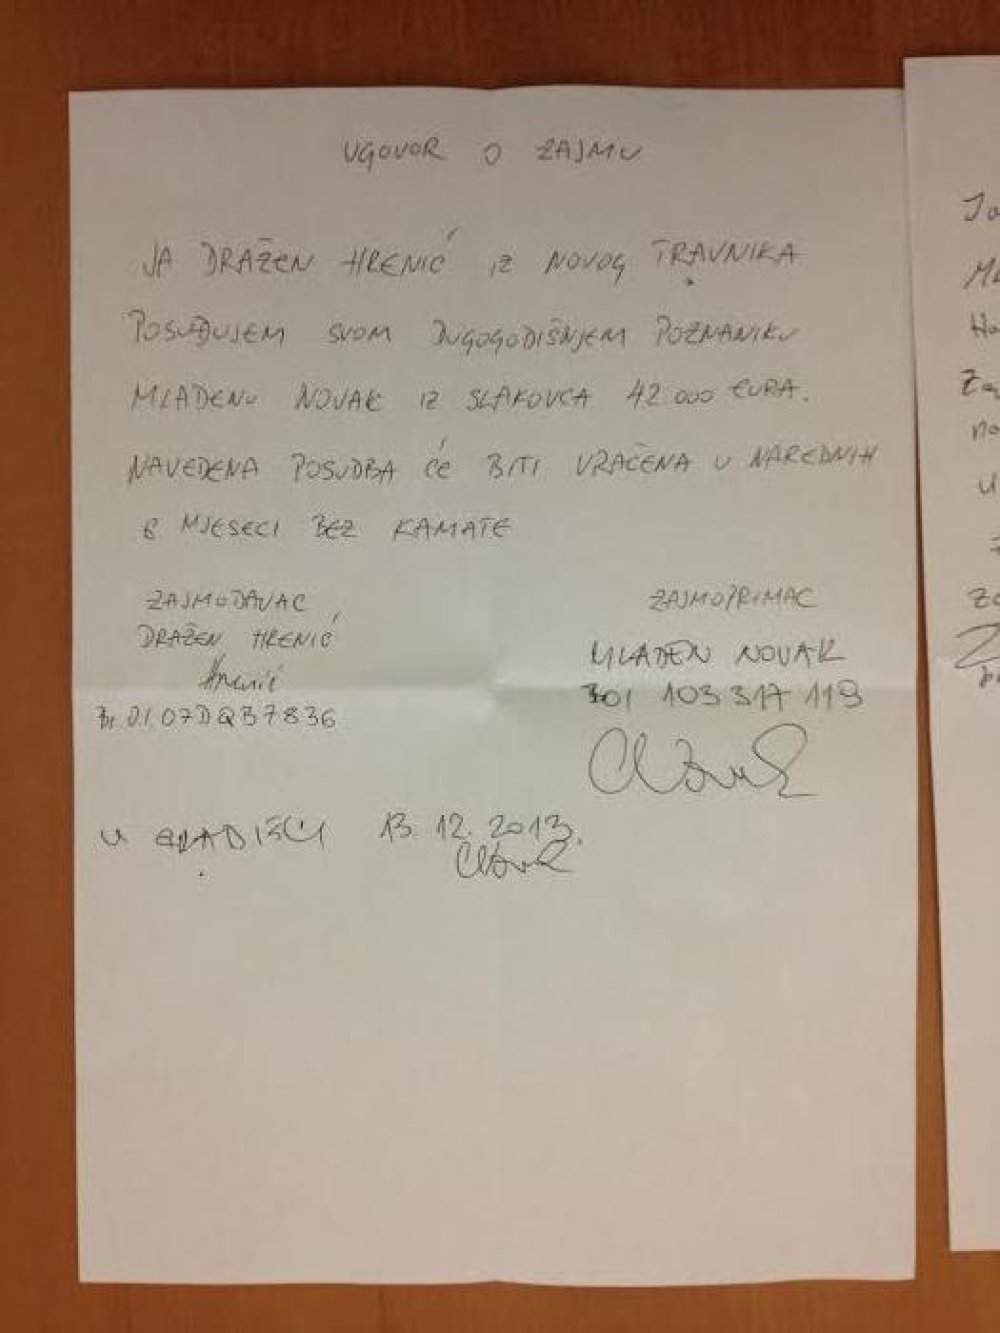 UGOVOR O ZAJMU
JA DRAŽEN HRENIĆ IZ NOVOG TRAVNIKA
POSUĐUJEM SVOM DUGOGODIŠNJEM POZNANIKU
MLADENU NOVAK IZ SLAKOVCA 42 000 EURA.
NAVEDENA POSUDBA ĆE BITI VRAČENA U NAREDNIH
6 MJESECI BEZ KAMATE
ZAJMODAVAC
DRAŽEN HRENIĆ
Hrenić
Br OI 07DQB7836
ZAJMOPRIMAC
MLADEN NOVAK
BOI 103 317 119
U GRADIŠCI 13. 12. 2013.